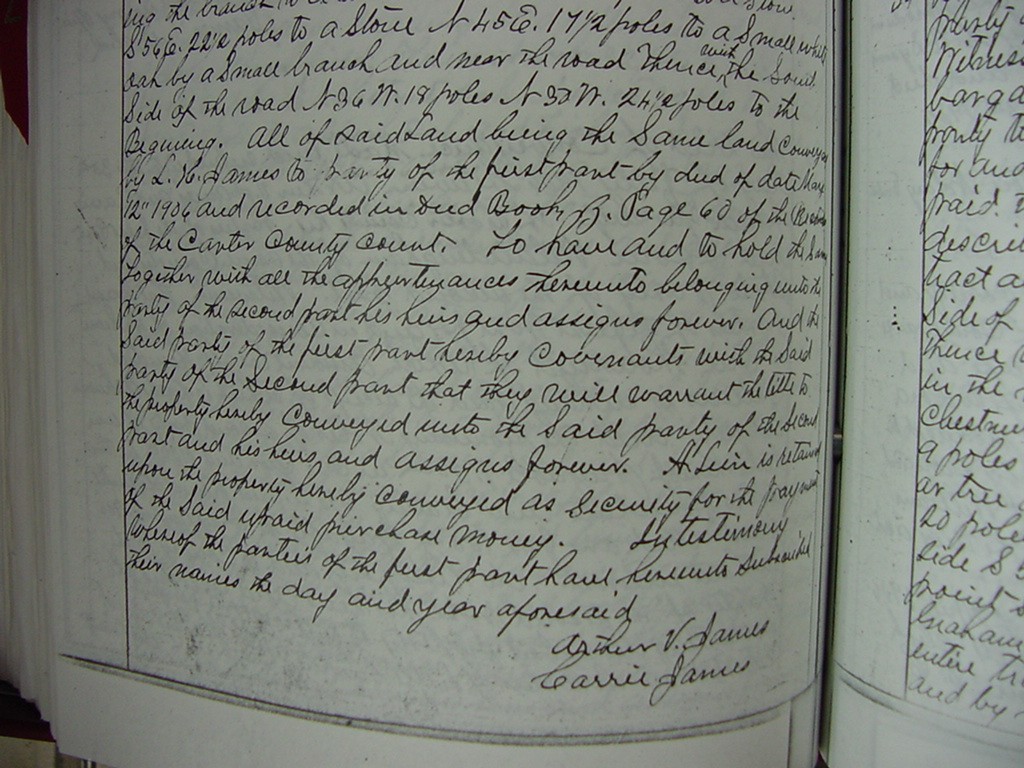 ing the branch
S 56 E. 22 1/2 poles to a Stone N 45 E. 17 1/2 poles to a Small white
oak by a Small branch and near the road Thence with the South
Side of the road N 36 W. 18 poles N 30 W. 24 1/2 poles to the
Begining. All of said Land being the Same land Conveyed
by L. H. James to party of the first part by deed of date
12" 1906 and recorded in Deed Book Page 60 of the
of the Carter County Court. To have and to hold the Same
Together with all the appertenances thereunto belonging unto the
party of the second part his heirs and assigns forever. And the
Said party of the first part hereby Covenants with the Said
party of the Second part that they will warrant the title to
the property hereby Conveyed unto the Said party of the Second
part and his heirs, and assigns forever. A Lien is retained
upon the property hereby Conveyed as Security for the payment
of the Said upaid purchase money. In testimony
whereof the parties of the first part have hereunto Subscribed
their names the day and year aforesaid
Arthur V. James
Carrie James
party
Witness
barga
party t
for and
paid.
describ
tract a
Side of
Thence
in the
Chestnu
9 poles
ar tree
20 poles
side S
point
Graham
entire tr
and by